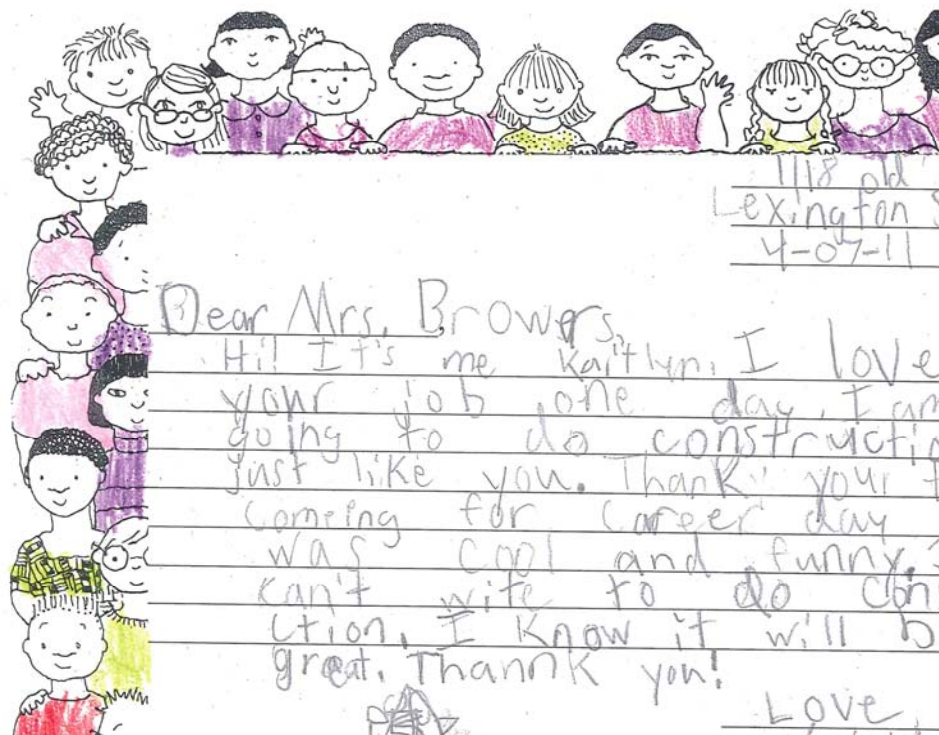 1118 old
Lexington S
4-07-11
Dear Mrs. Browers,
Hi! It's me Kaitlyn. I love
your job one day. I am
going to do constructi
just like you. Thank your f
comeing for career day
was cool and funny.
can't wite to do con
ction. I know it will b
great. Thannk you!
Love,